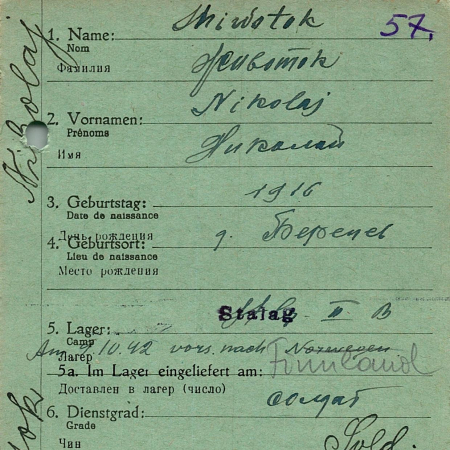 57.
1. Name: Shiwotok
Nom
Фамилия Животок
2. Vornamen: Nikolaj
Prénoms
Имя Николай
3. Geburtstag: 1916
Date de naissance
День рождения
4. Geburtsort: д. Береңев
Lieu de naissance
Место рождения
Stalag II B
5. Lager:
Camp
Am 10.42 vors. nach Norwegen Finnland
Лагерь
5a. Im Lager eingeliefert am:
Доставлен в лагерь (число)
6. Dienstgrad: солдат
Grade
Чин Sold.
Nikolaj